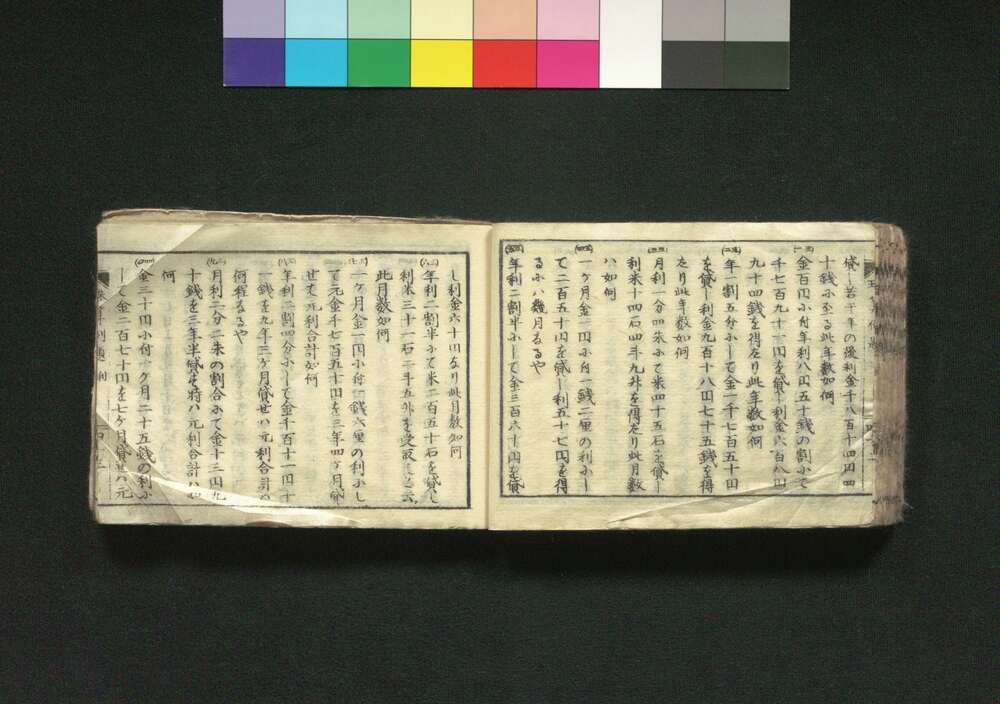 貸し若干年の後利金千八百十四円四
十銭小至る此年数如何
金百円小付年利八円五十銭の割小て
千七百九十一円を貸し利金六百八円
九十四銭を得たり此年数如何
年一割五分小して金一千七百五十円
を貸し利金九百十八円七十五銭を得
たり此年数如何
月利一分四朱小て米四十五石を貸し
利米十四石四斗九升を得たり此月数
ハ如何
一ヶ月金一円小付一銭二厘の利小し
て二百五十円を貸し利五十七円を得
るハ幾月なるや
年利二割半小して金三百六十円を貸
し利金六十円なり此月数如何
年利二割半小て米二百五十石を貸し
利米三十一石二斗五升を受取と云
此月数如何
一ヶ月金一円小付一銭六厘の利小し
て元金千七百五十円を三年四ヶ月貸
せて元利合計如何
年利二割四分小して金千百十一円十
一銭を九年二ヶ月貸せハ元利合計ハ
何程なるや
月利二分二朱の割合小て金十三円九
十銭を三年半貸す時ハ元利合計ハ如
何
金三十円小付一ヶ月二十五銭の利小
して金二百七十円を七ヶ月貸せハ元